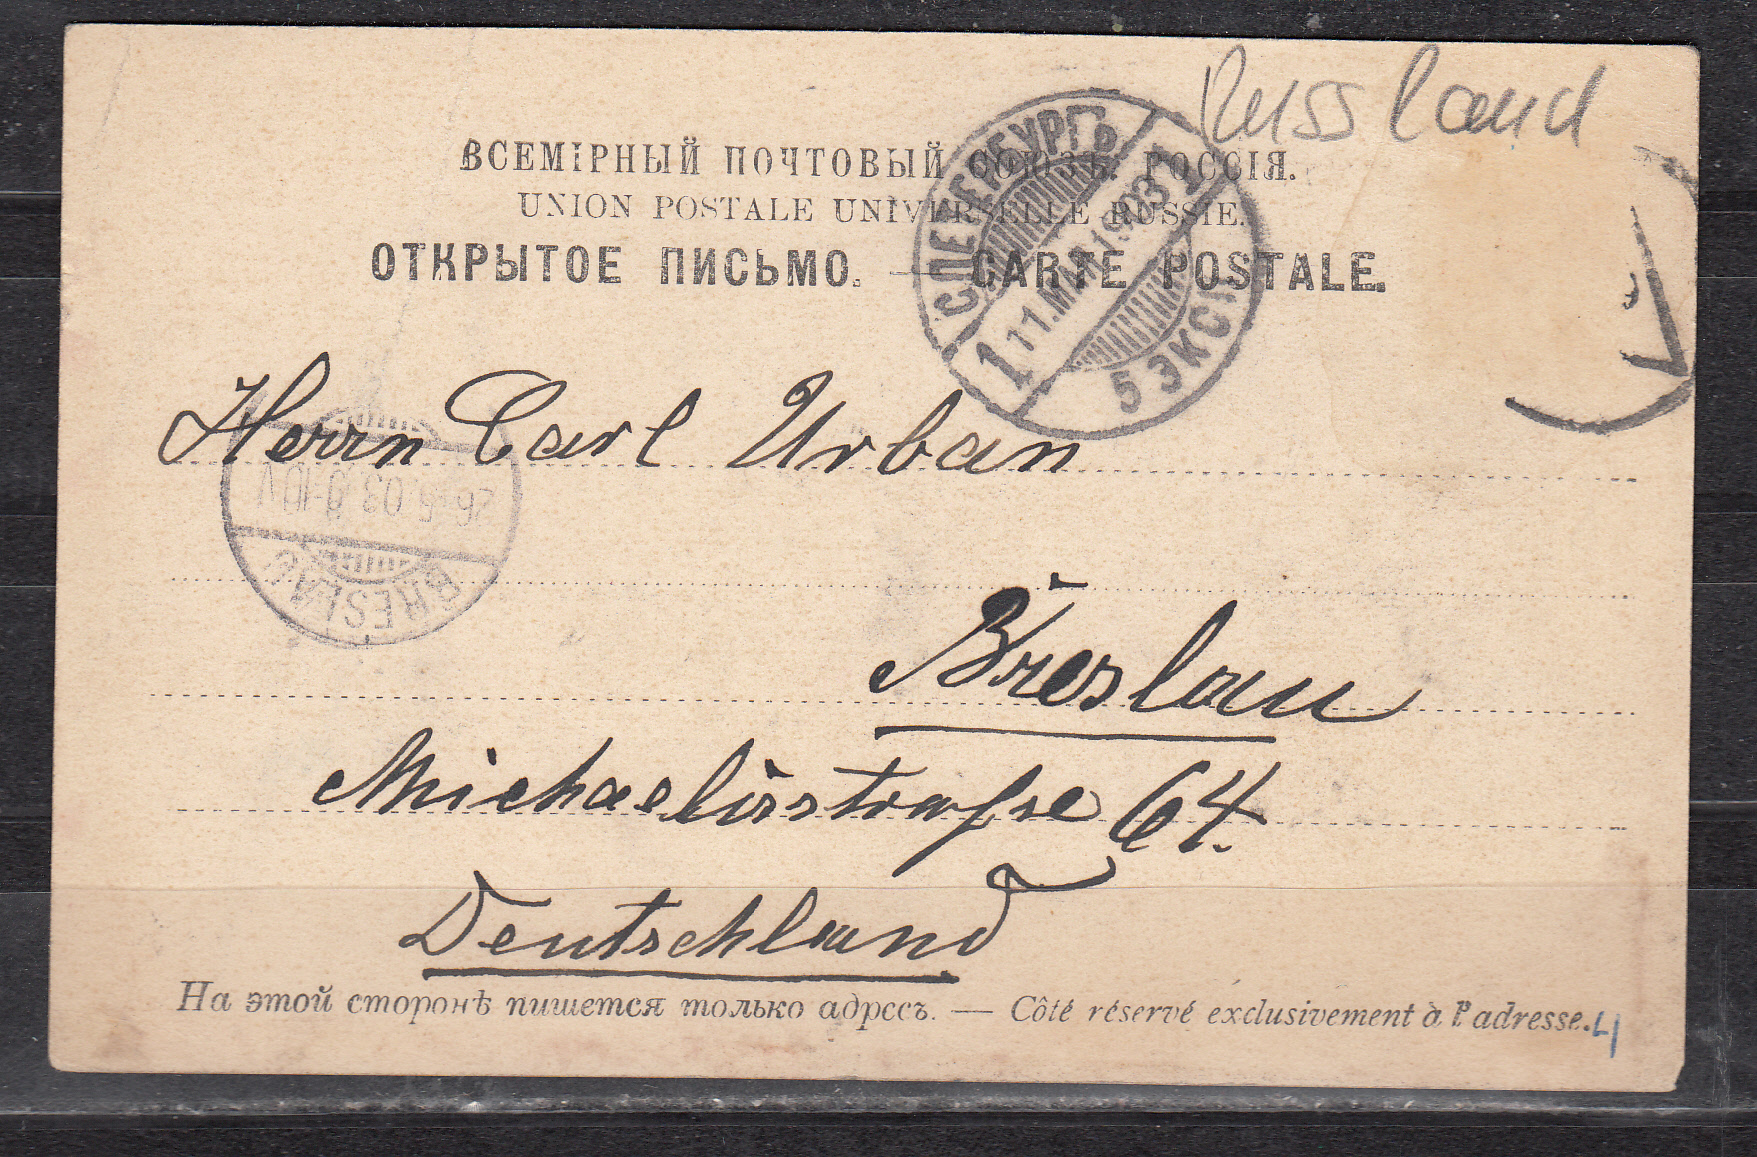 Russland
ВСЕМІРНЫЙ ПОЧТОВЫЙ СОЮЗЪ. РОССІЯ.
UNION POSTALE UNIVERSELLE RUSSIE.
ОТКРЫТОЕ ПИСЬМО. — CARTE POSTALE.
С.ПЕТЕРБУРГЪ
1 11.МАЯ 1903 1
5 ЭКСП.
Herrn Carl Urban
26.5.03. 9-10V
BRESLAU
Breslau
Michaelisstraſse 64.
Deutschland
На этой сторонѣ пишется только адресъ. — Côté réservé exclusivement à l'adresse.
4